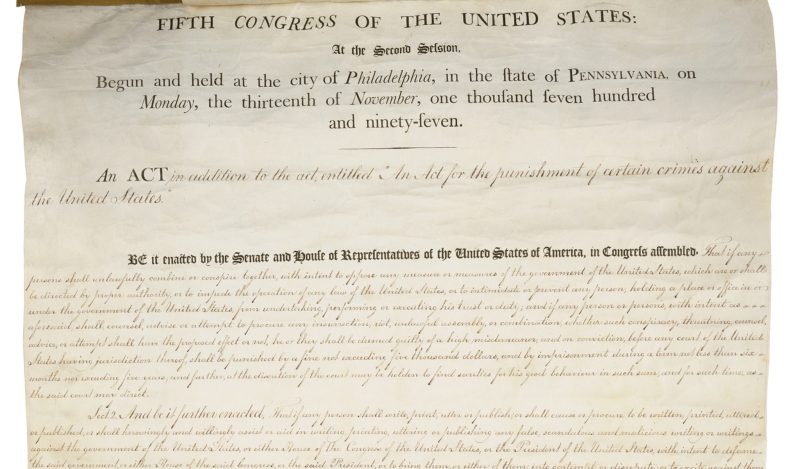 FIFTH CONGRESS OF THE UNITED STATES:
At the Second Session,
Begun and held at the city of Philadelphia, in the ſtate of PENNSYLVANIA, on
Monday, the thirteenth of November, one thouſand ſeven hundred
and ninety-ſeven.
An ACT in addition to the act, entitled "An Act for the punishment of certain crimes against
the United States."
BE it enacted by the Senate and House of Representatives of the United States of America, in Congress assembled. That if any
persons shall unlawfully combine or conspire together, with intent to oppose any measure or measures of the government of the United States, which are or shall
be directed by proper authority, or to impede the operation of any law of the United States, or to intimidate or prevent any person, holding a place or office in or
under the government of the United States, from undertaking, performing or executing his trust or duty; and if any person or persons, with intent as
aforesaid, shall counsel, advise or attempt to procure any insurrection, riot, unlawful assembly, or combination, whether such conspiracy, threatening, counsel,
advice, or attempt shall have the proposed effect or not, he or they shall be deemed guilty of a high misdemeanor, and on conviction, before any court of the United
States having jurisdiction thereof, shall be punished by a fine not exceeding five thousand dollars, and by imprisonment during a term not less than six
months nor exceeding five years; and further, at the discretion of the court may be holden to find sureties for his good behaviour in such sum, and for such time, as
the said court may direct.
Sect. 2. And be it further enacted, That if any person shall write, print, utter or publish, or shall cause or procure to be written, printed, uttered
or published, or shall knowingly and willingly assist or aid in writing, printing, uttering or publishing any false, scandalous and malicious writing or writings
against the government of the United States, or either House of the Congress of the United States, or the President of the United States, with intent to defame
the said government, or either House of the said Congress, or the said President, or to bring them, or either of them, into contempt or disrepute